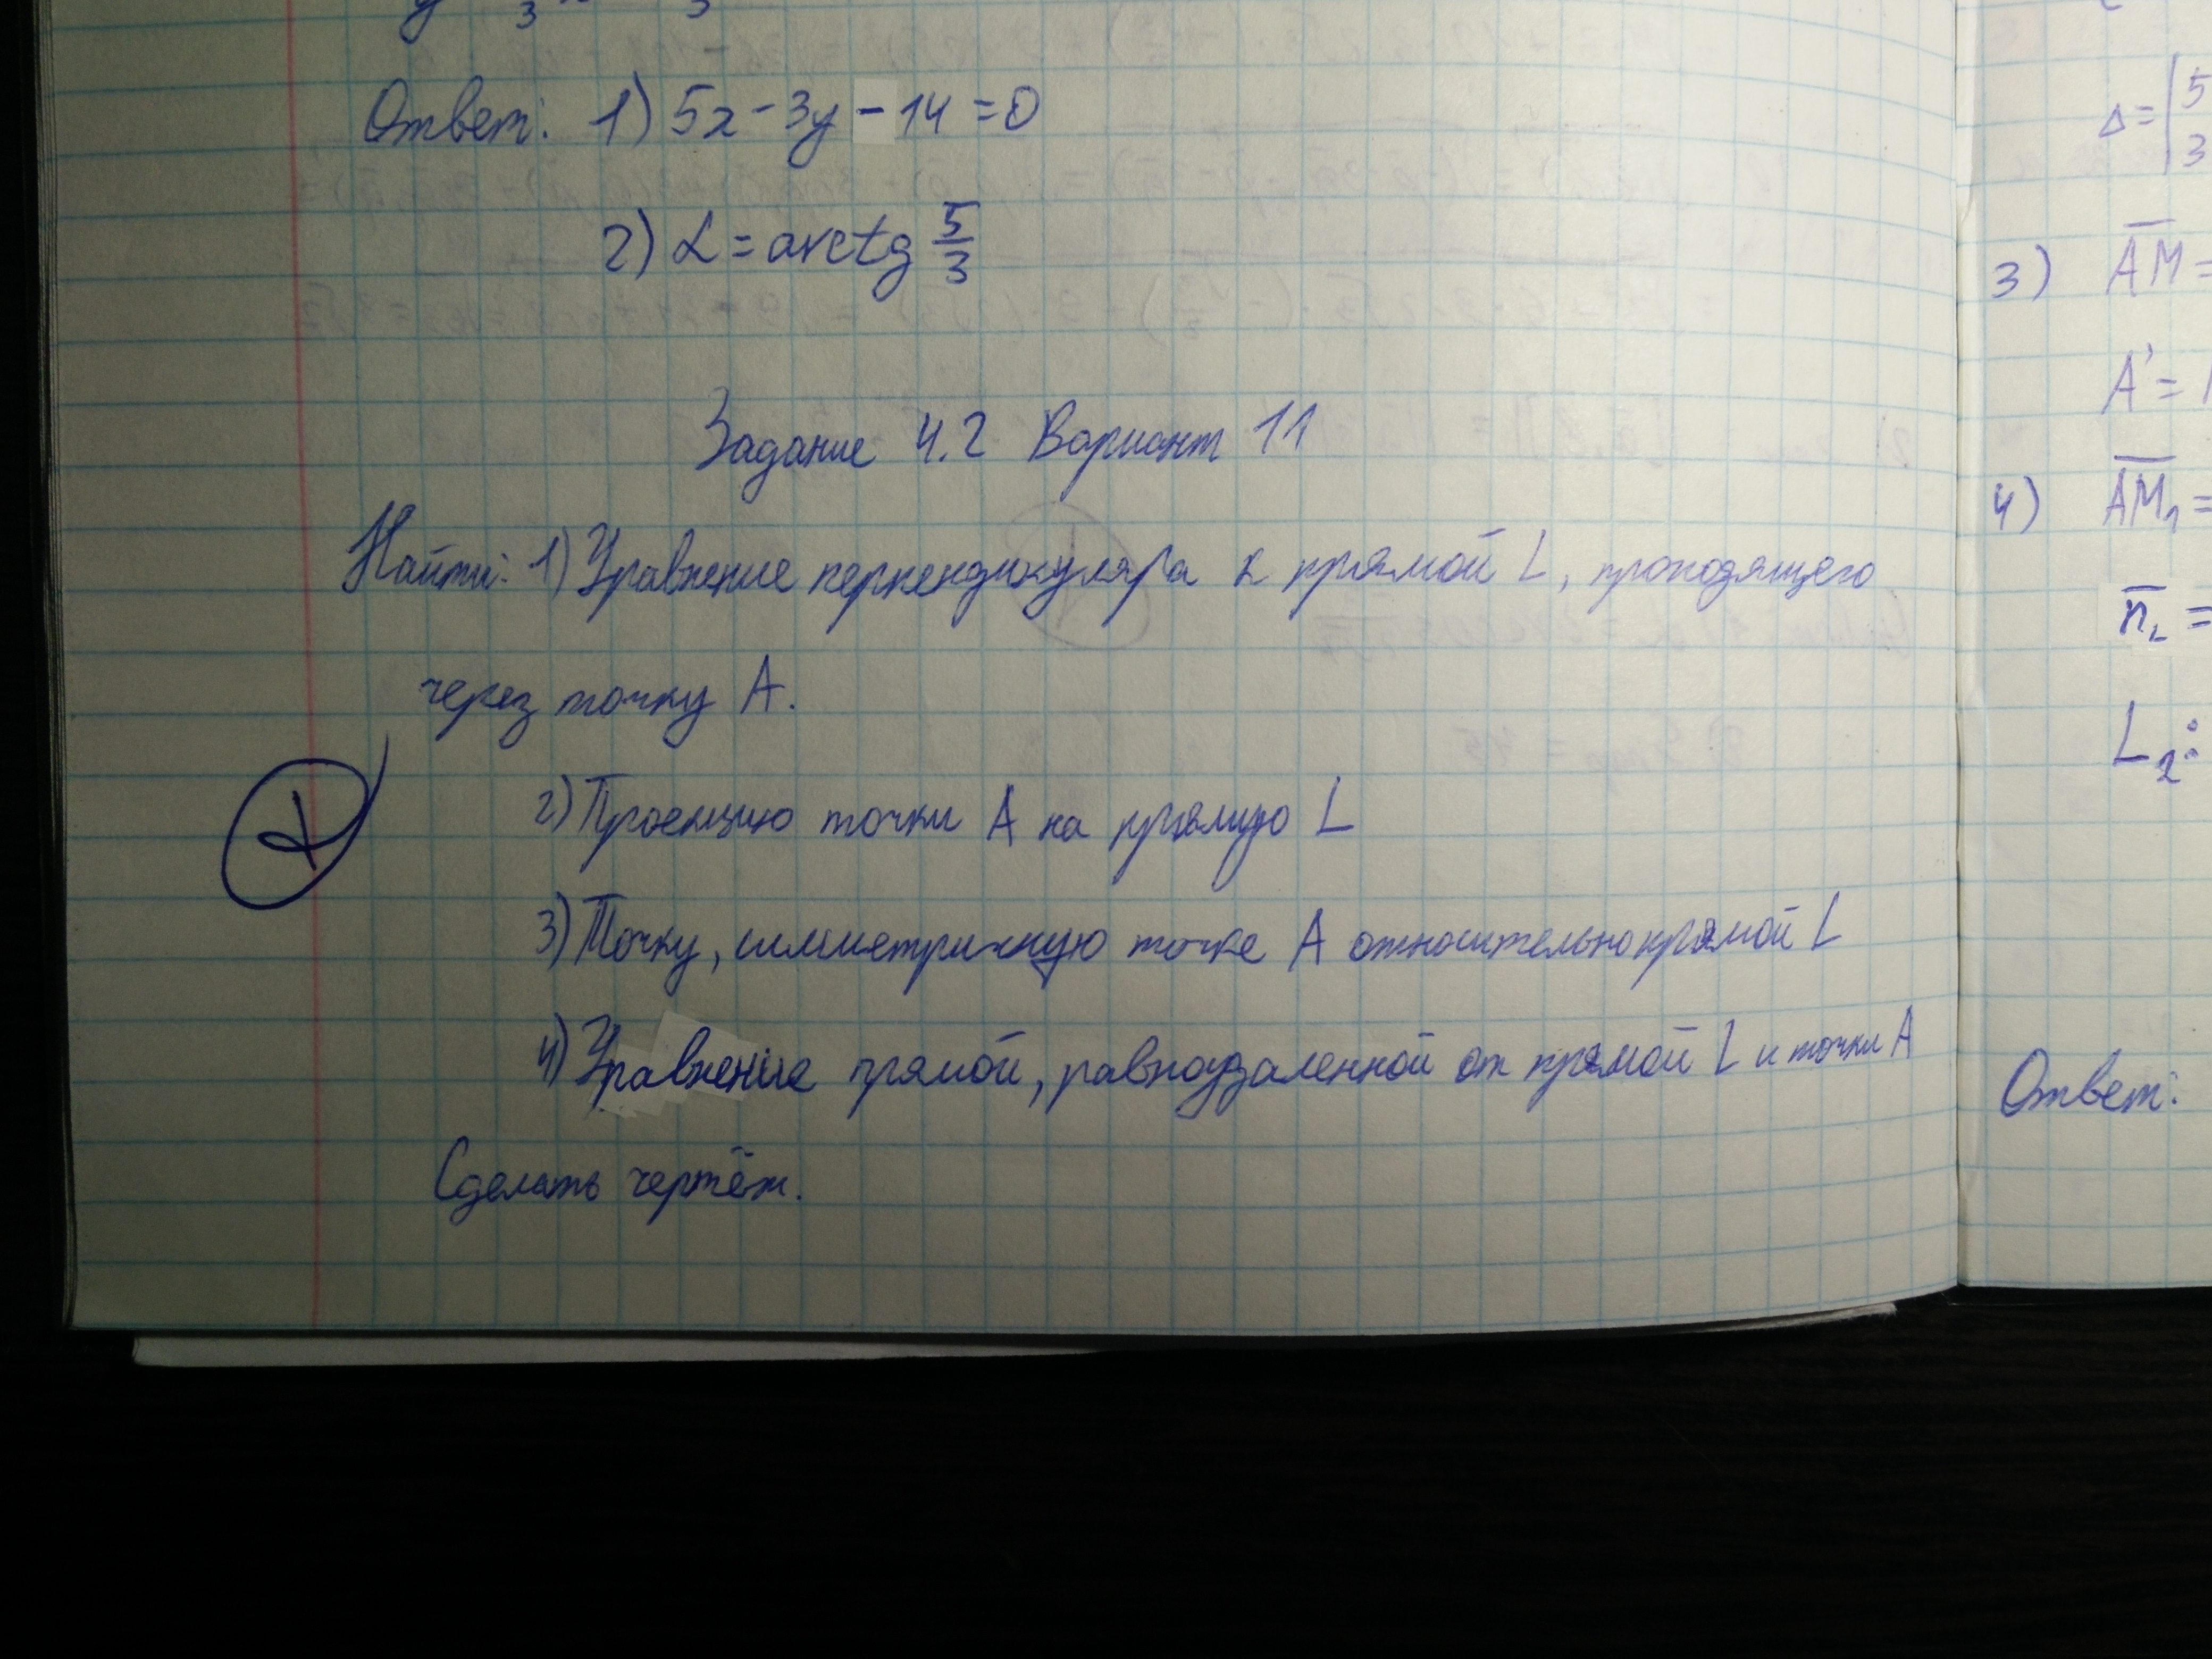 Ответ: 1) 5x - 3y - 14 = 0
2) α = arctg 5/3
Задание 4.2 Вариант 11
Найти: 1) Уравнение перпендикуляра к прямой L, проходящего
через точку A.
2) Проекцию точки A на прямую L
3) Точку, симметричную точке A относительно прямой L
4) Уравнение прямой, равноудаленной от прямой L и точки A
Сделать чертёж.
Δ = | 5
3
3) AM =
A' =
4) AM₁ =
n_L =
L₂:
Ответ: